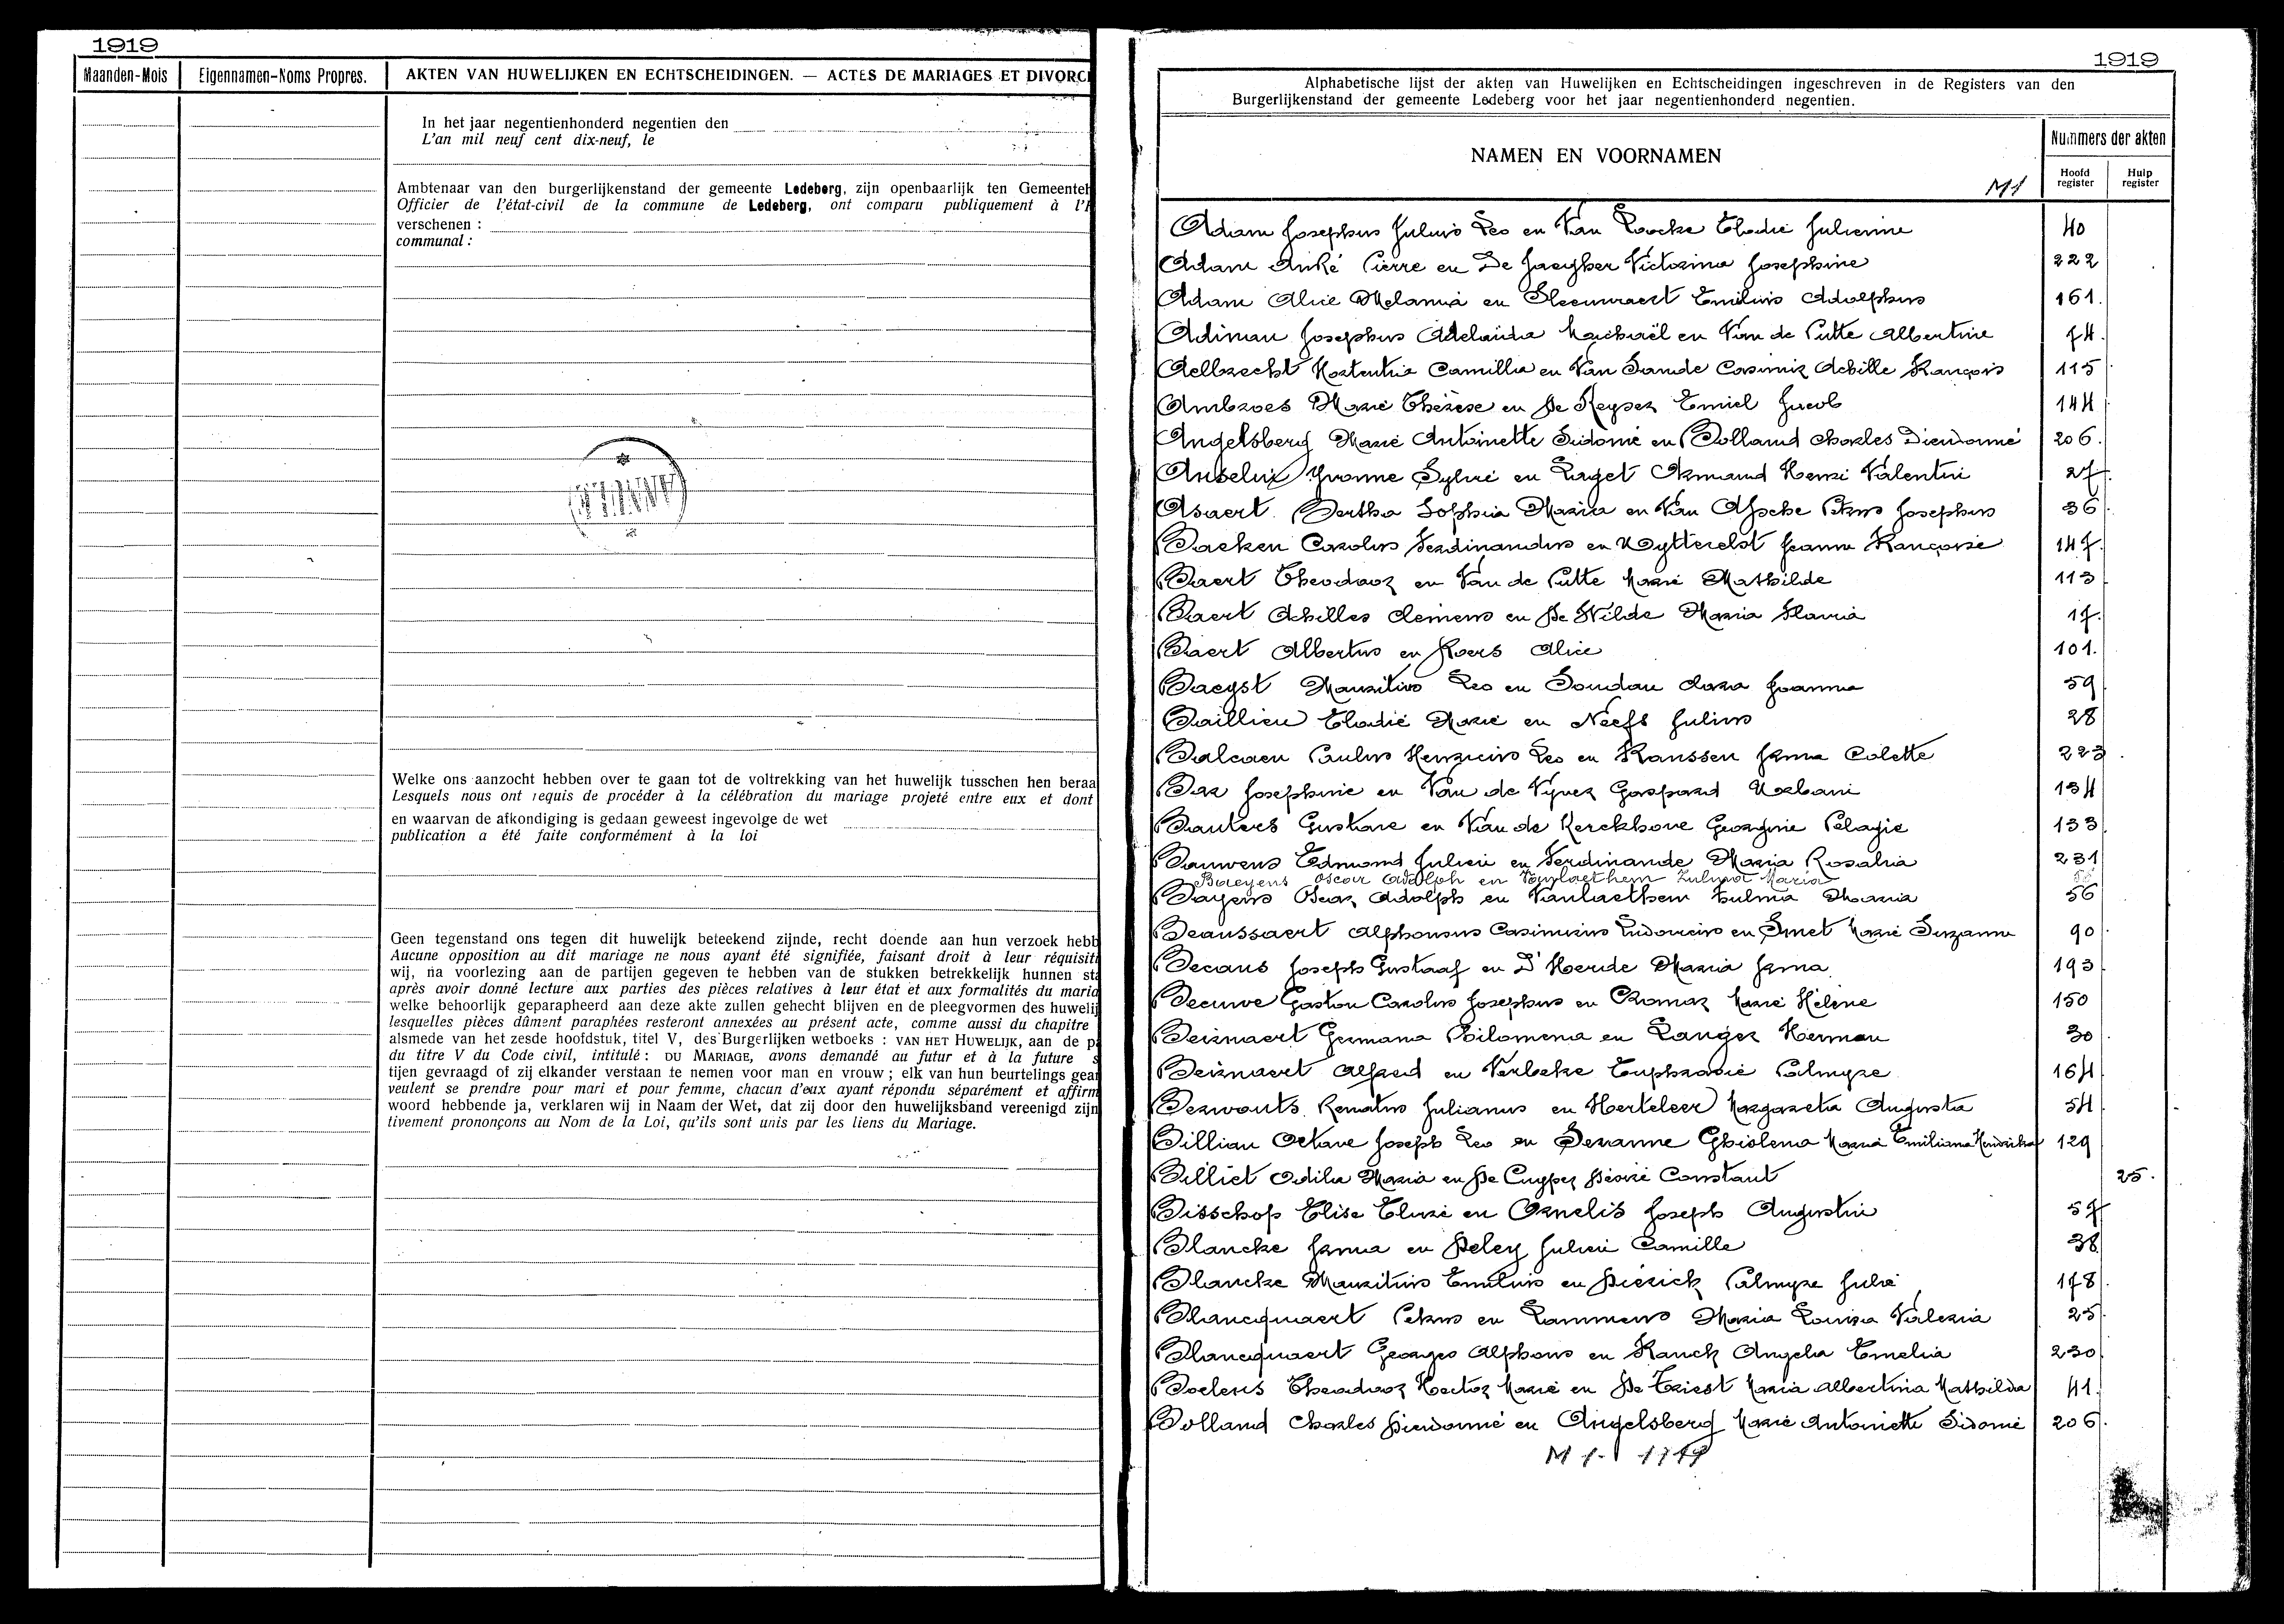 1919
Maanden-Mois
Eigennamen-Noms Propres.
AKTEN VAN HUWELIJKEN EN ECHTSCHEIDINGEN. — ACTES DE MARIAGES ET DIVORC
In het jaar negentienhonderd negentien den
L'an mil neuf cent dix-neuf, le
Ambtenaar van den burgerlijkenstand der gemeente Ledeberg, zijn openbaarlijk ten Gemeenteh
Officier de l'état-civil de la commune de Ledeberg, ont comparu publiquement à l'H
verschenen :
communal :
Welke ons aanzocht hebben over te gaan tot de voltrekking van het huwelijk tusschen hen beraa
Lesquels nous ont requis de procéder à la célébration du mariage projeté entre eux et dont
en waarvan de afkondiging is gedaan geweest ingevolge de wet
publication a été faite conformément à la loi
Geen tegenstand ons tegen dit huwelijk beteekend zijnde, recht doende aan hun verzoek hebb
Aucune opposition au dit mariage ne nous ayant été signifiée, faisant droit à leur réquisiti
wij, na voorlezing aan de partijen gegeven te hebben van de stukken betrekkelijk hunnen sta
après avoir donné lecture aux parties des pièces relatives à leur état et aux formalités du maria
welke behoorlijk geparapheerd aan deze akte zullen gehecht blijven en de pleegvormen des huwelij
lesquelles pièces dûment paraphées resteront annexées au présent acte, comme aussi du chapitre
alsmede van het zesde hoofdstuk, titel V, des Burgerlijken wetboeks : VAN HET HUWELIJK, aan de pa
du titre V du Code civil, intitulé : DU MARIAGE, avons demandé au futur et à la future s
tijen gevraagd of zij elkander verstaan te nemen voor man en vrouw ; elk van hun beurtelings gean
veulent se prendre pour mari et pour femme, chacun d'eux ayant répondu séparément et affirm
woord hebbende ja, verklaren wij in Naam der Wet, dat zij door den huwelijksband vereenigd zijn
tivement prononçons au Nom de la Loi, qu'ils sont unis par les liens du Mariage.
1919
Alphabetische lijst der akten van Huwelijken en Echtscheidingen ingeschreven in de Registers van den
Burgerlijkenstand der gemeente Ledeberg voor het jaar negentienhonderd negentien.
NAMEN EN VOORNAMEN
M1
Nummers der akten
Hoofd register
Hulp register
Adam Josephus Julius Leo en Van Loocke Elodie Julienne 40
Adam André Pierre en De Jaegher Victorina Josephine 222
Adam Alice Melania en Sleeuwaert Emilius Adolphus 161.
Adinau Josephus Adelaida Machaël en Van de Putte Albertine 74.
Aelbrecht Hortentia Camillia en Van Damde Casimir Achille François 115
Ambroes Marie Thérèse en De Keyser Emiel Jacob 144
Angelsberg Marie Antoinette Sidonie en Bolland Charles Dieudonné 206.
Anselin Yvonne Sylvie en Laget Armand Henri Valentin 27.
Asaert Bertha Sophia Maria en Van Assche Petrus Josephus 36
Baeken Carolus Ferdinandus en Uytterelst Jeanne Françoise 147.
Baert Theodoor en Van de Putte Marie Mathilde 113
Baert Achilles Clemens en De Wilde Maria Flavia 17.
Baert Albertus en Roers Alice 101.
Baeyst Mauritius Leo en Soudan Clara Joanna 59
Baillieu Elodie Marie en Neefs Julius 28
Balcaen Paulus Henricus Leo en Franssen Irma Colette 223.
Bar Josephine en Van de Vyver Gaspard Urbani 134
Bauters Gustave en Van de Kerckhove Georgine Pelagie 133
Bauwens Edmond Julien en Ferdinande Maria Rosalia 231
Baeyens Oscar Adolph en Vanlaethem Zulma Maria
Bayens Oscar Adolph en Vanlaethem Zulma Maria 56
Beaussaert Alphonsus Casimirus Ludovicus en Smet Marie Suzanne 90.
Becaus Joseph Gustaaf en D'Hoende Maria Irma 193
Beeuwe Gaston Carolus Josephus en Cromar Marie Hélène 150
Beirnaert Germana Philomena en Langer Herman 30
Beirnaert Alfred en Verbeke Euphrasie Palmyre 164
Berwouts Renatus Julianus en Herteleer Margareta Augusta 54
Billian Octave Joseph Leo en Devanne Ghislena Maria Emiliana Hendrika 129
Billiet Odilia Maria en De Cuyper Désiré Constant 25.
Bisschop Elise Elvire en Cornelis Joseph Augustin 57
Blancke Irma en Deley Julien Camille 38
Blancke Mauritius Emilius en Diérick Palmyre Julie 178.
Blancquaert Petrus en Lammens Maria Louisa Valeria 25.
Blancquaert Georges Alphons en Franck Angela Emelia 230
Boelens Theodoor Hector Marie en De Triest Maria Albertina Mathilda 41.
Bolland Charles Dieudonné en Angelsberg Marie Antoinette Sidonie 206.